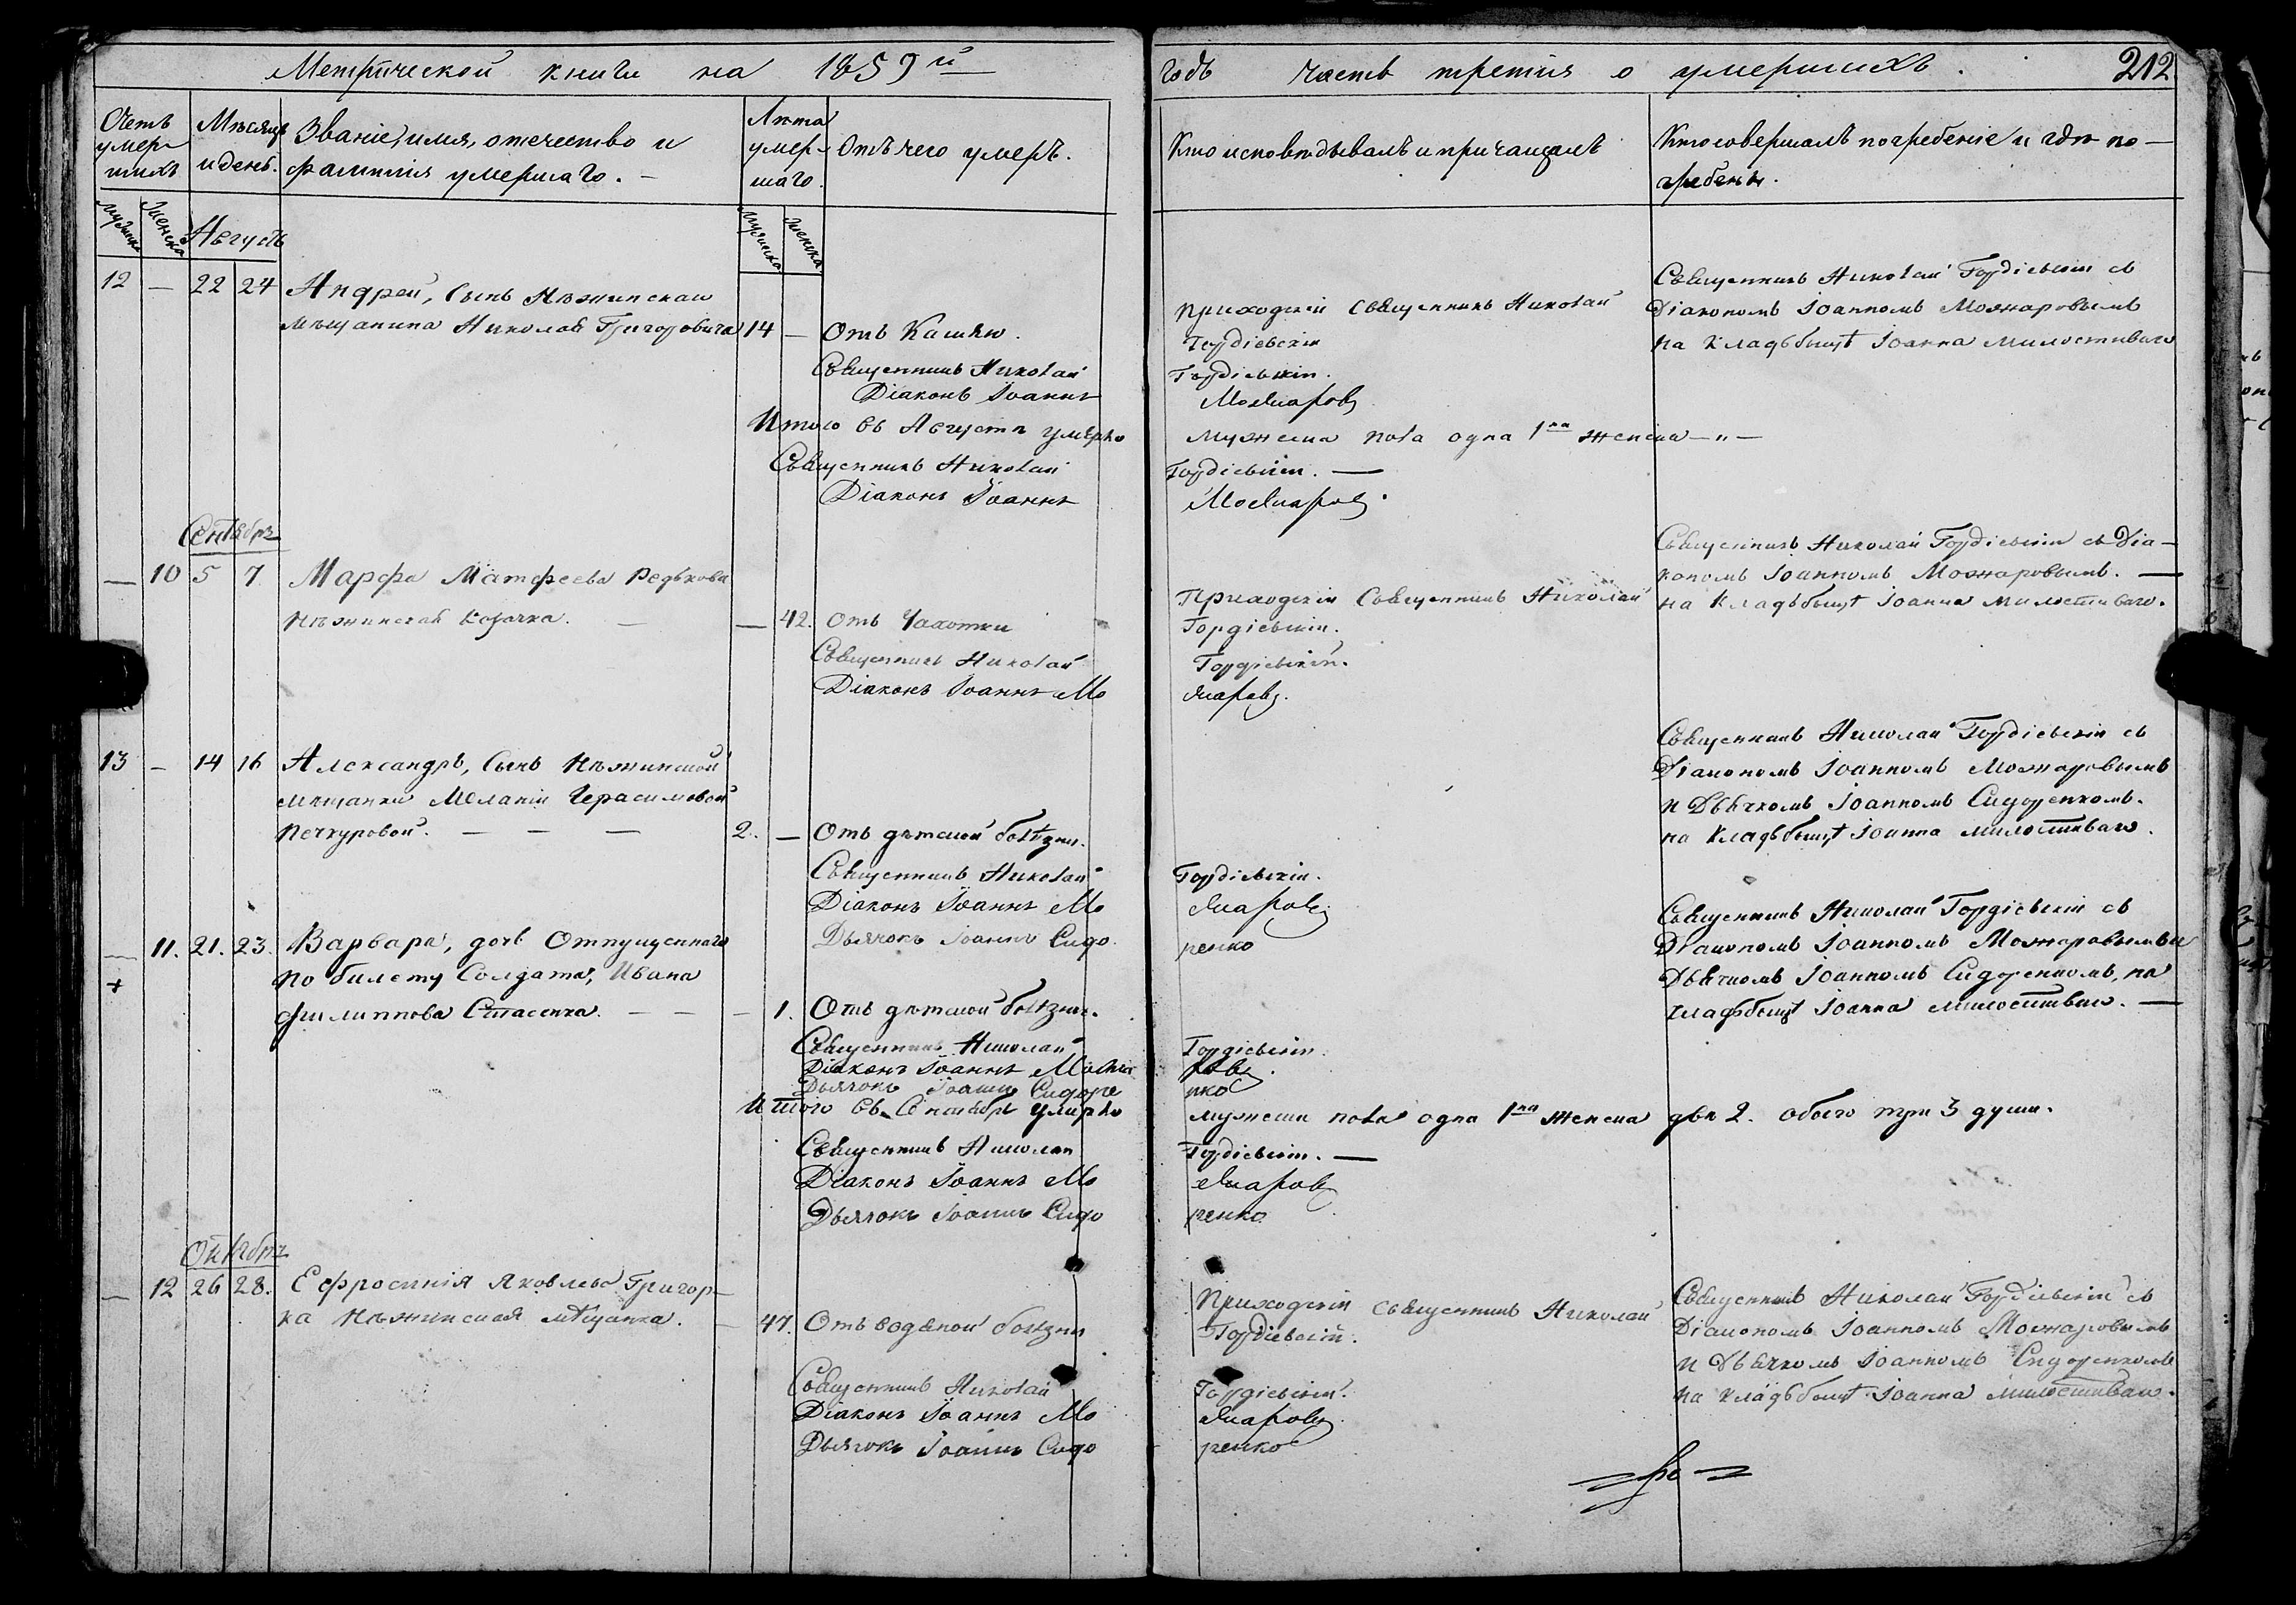 Метрической книги на 1859й
годъ часть третія о умершихъ.
212
Счетъ умер-
шихъ
Мѣсяцъ
и день.
Званіе, имя, отечество и
фамилія умершаго. —
Лѣта
умер-
шаго.
Отъ чего умеръ.
Кто исповѣдывалъ и причащалъ
Кто совершалъ погребеніе и гдѣ по-
гребены.
мужеска
женска
Августъ
мужеска
женска
12 — 22 24 Андрей, сынъ Нѣжинскаго
мѣщанина Николая Григоровича 14 — Отъ Кашлю.
Священникъ Николай
Діаконъ Іоаннъ
Приходскій Священникъ Николай
Гордіевскій
Гордіевскій.
Можаровъ
Священникъ Николай Гордіевскій съ
Діакономъ Іоанномъ Можаровымъ
на Кладьбыщѣ Іоанна Милостиваго
Итого въ Августѣ умерло
мужеска пола одна 1на женска — „ —
Священникъ Николай
Гордіевскій. —
Діаконъ Іоаннъ
Можаровъ.
Сентябрь
— 10 5 7. Марфа Матфеева Редькова
Нѣжинская Козачка. — — 42. Отъ Чахотки
Священникъ Николай
Діаконъ Іоаннъ Мо
Приходскій Священникъ Николай
Гордіевскій.
Гордіевскій.
жаровъ.
Священникъ Николай Гордіевскій съ Діа-
кономъ Іоанномъ Можаровымъ. —
на Кладьбыщѣ Іоанна Милостиваго.
13 — 14 16 Александръ, сынъ Нѣжинской
мѣщанки Меланіи Герасимовой
Печкуровой. — — — 2. — Отъ дѣтской болѣзни.
Священникъ Николай
Діаконъ Іоаннъ Мо
Дьячокъ Іоаннъ Сидо
Гордіевскій.
жаровъ
ренко
Священникъ Николай Гордіевскій съ
Діакономъ Іоанномъ Можаровымъ
и Дьячкомъ Іоанномъ Сидоренкомъ.
на Кладьбыщѣ Іоанна Милостиваго.
— 11. 21. 23. Варвара, дочь Отпущеннаго
+ по билету Солдата, Ивана
Филиппова Стасенка. — — — 1. Отъ дѣтской болѣзни.
Священникъ Николай
Діаконъ Іоаннъ Можа
Дьячокъ Іоаннъ Сидоре
Гордіевскій.
ровъ.
нко
Священникъ Николай Гордіевскій съ
Діакономъ Іоанномъ Можаровымъ и
Дьячкомъ Іоанномъ Сидоренкомъ, на
кладьбыщѣ Іоанна Милостиваго. —
Итого въ Сентябрѣ умерло
мужеска пола одна 1на женска двѣ 2. обоего три 3 души.
Священникъ Николай
Гордіевскій. —
Діаконъ Іоаннъ Мо
жаровъ
Дьячокъ Іоаннъ Сидо
ренко
Октябрь
— 12 26 28. Ефросинія Яковлева Григор-
ка Нѣжинская мѣщанка. — 47. Отъ водяной болѣзни
Священникъ Николай
Діаконъ Іоаннъ Мо
Дьячокъ Іоаннъ Сидо
Приходскій Священникъ Николай
Гордіевскій.
Гордіевскій.
жаровъ
ренко
Священникъ Николай Гордіевскій съ
Діакономъ Іоанномъ Можаровымъ
и Дьячкомъ Іоанномъ Сидоренкомъ
на Кладьбыщѣ Іоанна Милостиваго.